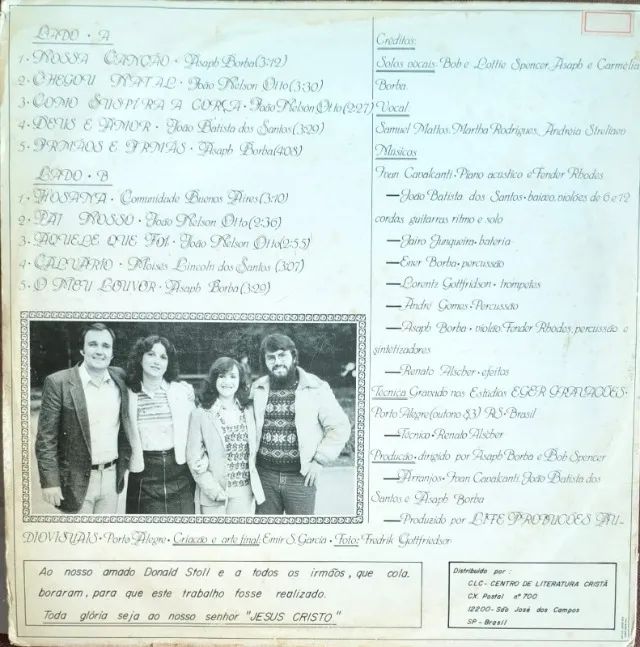 LADO • A
1 • NOSSA CANÇÃO • Asaph Borba (3:12)
2 • CHEGOU NATAL • João Nelson Otto (3:30)
3 • COMO SUSPIRA A CORÇA • João Nelson Otto (2:27)
4 • DEUS E AMOR • João Batista dos Santos (3:29)
5 • IRMÃOS E IRMÃS • Asaph Borba (4:08)
LADO • B
1 • HOSANA • Comunidade Buenos Aires (3:10)
2 • PAI NOSSO • João Nelson Otto (2:36)
3 • AQUELE QUE FOI • João Nelson Otto (2:55)
4 • CALVÁRIO • Moisés Lincoln dos Santos (3:07)
5 • O MEU LOUVOR • Asaph Borba (3:29)
Créditos:
Solos vocais: Bob e Lottie Spencer, Asaph e Carmélia
Borba
Vocal
Samuel Mattos, Martha Rodrigues, Andréia Streliaev
Músicos
Ivan Cavalcanti • Piano acústico e Fender Rhodes
— João Batista dos Santos • baixo, violões de 6 e 12
cordas guitarras ritmo e solo
— Jairo Junqueira • bateria
— Ener Borba • percussão
— Lorentz Gottfridson • trompetes
— André Gomes • Percussão
— Asaph Borba • violão, Fender Rhodes, percussão e
sintetizadores
— Renato Alscher • efeitos
Técnica Gravado nos Estúdios EGER GRAVAÇÕES •
Porto Alegre (outono 83) RS • Brasil
— Técnico • Renato Alscher
Produção • dirigido por Asaph Borba e Bob Spencer
— Arranjos • Ivan Cavalcanti, João Batista dos
Santos e Asaph Borba
— Produzido por LIFE PRODUÇÕES AU-
DIOVISUAIS • Porto Alegre • Criação e arte final: Emir S. Garcia • Foto: Fredrik Gottfriedson
Ao nosso amado Donald Stoll e a todos os irmãos, que cola.
boraram, para que este trabalho fosse realizado.
Toda glória seja ao nosso senhor "JESUS CRISTO"
Distribuido por :
CLC - CENTRO DE LITERATURA CRISTÃ
CX. Postal nº 700
12200 - São José dos Campos
SP - Brasil